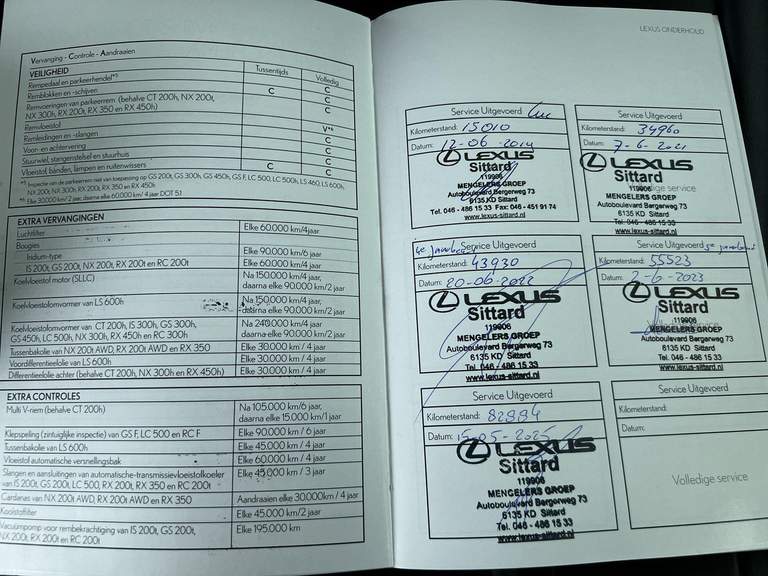 Vervanging - Controle - Aandraaien
VEILIGHEID Tussentijds Volledig
Rempedaal en parkeerhendel*⁵ C
Remblokken en -schijven C C
Remvoeringen van parkeerrem (behalve CT 200h, NX 200t, C
NX 300h, RX 200t, RX 350 en RX 450h)
Remvloeistof V*⁶
Remleidingen en -slangen C
Voor- en achtervering C
Stuurwiel, stangenstelsel en stuurhuis C
Vloeistof, banden, lampen en ruitenwissers C C
EXTRA VERVANGINGEN
Luchtfilter Elke 60.000 km/4jaar
Bougies
Iridium-type Elke 90.000 km/6 jaar
IS 200t, GS 200t, NX 200t, RX 200t en RC 200t Elke 60.000 km/4 jaar
Koelvloeistof motor (SLLC) Na 150.000 km/4 jaar,
daarna elke 90.000 km/2 jaar
Koelvloeistofomvormer van LS 600h Na 150.000 km/4 jaar,
daarna elke 90.000 km/2 jaar
Koelvloeistofomvormer van CT 200h, IS 300h, GS 300h, Na 240.000 km/4 jaar
GS 450h, LC 500h, NX 300h, RX 450h en RC 300h daarna elke 90.000 km/2 jaar
Tussenbakolie van NX 200t AWD, RX 200t AWD en RX 350 Elke 30.000 km / 4 jaar
Voordifferentieelolie van LS 600h Elke 30.000 km / 4 jaar
Differentieelolie achter (behalve CT 200h, NX 300h en RX 450h) Elke 30.000 km / 4 jaar
EXTRA CONTROLES
Multi V-riem (behalve CT 200h) Na 105.000 km/6 jaar,
daarna elke 15.000 km/1 jaar
Klepspeling (zintuiglijke inspectie) van GS F, LC 500 en RC F Elke 90.000 km / 6 jaar
Tussenbakolie van LS 600h Elke 45.000 km / 4 jaar
Vloeistof automatische versnellingsbak Elke 60.000 km / 4 jaar
Slangen en aansluitingen van automatische-transmissievloeistofkoeler Elke 45.000 km / 3 jaar
van IS 200t, GS 200t, LC 500, RX 200t, RX 350 en RC 200t
Cardanas van NX 200t AWD, RX 200t AWD en RX 350 Aandraaien elke 30.000km / 4 jaar
Koolstoffilter Elke 45.000 km/2 jaar
Vacuümpomp voor rembekrachtiging van IS 200t, GS 200t, Elke 195.000 km
NX 200t, RX 200t en RC 200t
LEXUS ONDERHOUD
Service Uitgevoerd
Kilometerstand: 15010
Datum: 12-06-2019
LEXUS
Sittard
119906
MENGELERS GROEP
Autoboulevard Bergerweg 73
6135 KD Sittard
Tel. 046 - 486 15 33 Fax: 046 - 451 91 74
www.lexus-sittard.nl
Service Uitgevoerd
Kilometerstand: 34960
Datum: 7-6-2021
LEXUS
Sittard
119906
MENGELERS GROEP
Autoboulevard Bergerweg 73
6135 KD Sittard
Tel. 046 - 486 15 33
www.lexus-sittard.nl
Service Uitgevoerd
Kilometerstand: 43930
Datum: 20-06-2022
LEXUS
Sittard
119906
MENGELERS GROEP
Autoboulevard Bergerweg 73
6135 KD Sittard
Tel. 046 - 486 15 33
www.lexus-sittard.nl
Service Uitgevoerd
Kilometerstand: 55523
Datum: 2-6-2023
LEXUS
Sittard
119906
MENGELERS GROEP
Autoboulevard Bergerweg 73
6135 KD Sittard
Tel. 046 - 486 15 33
www.lexus-sittard.nl
Service Uitgevoerd
Kilometerstand: 82994
Datum: 15-05-2025
LEXUS
Sittard
119906
MENGELERS GROEP
Autoboulevard Bergerweg 73
6135 KD Sittard
Tel. 046 - 486 15 33
www.lexus-sittard.nl
Service Uitgevoerd
Kilometerstand:
Datum:
Volledige service